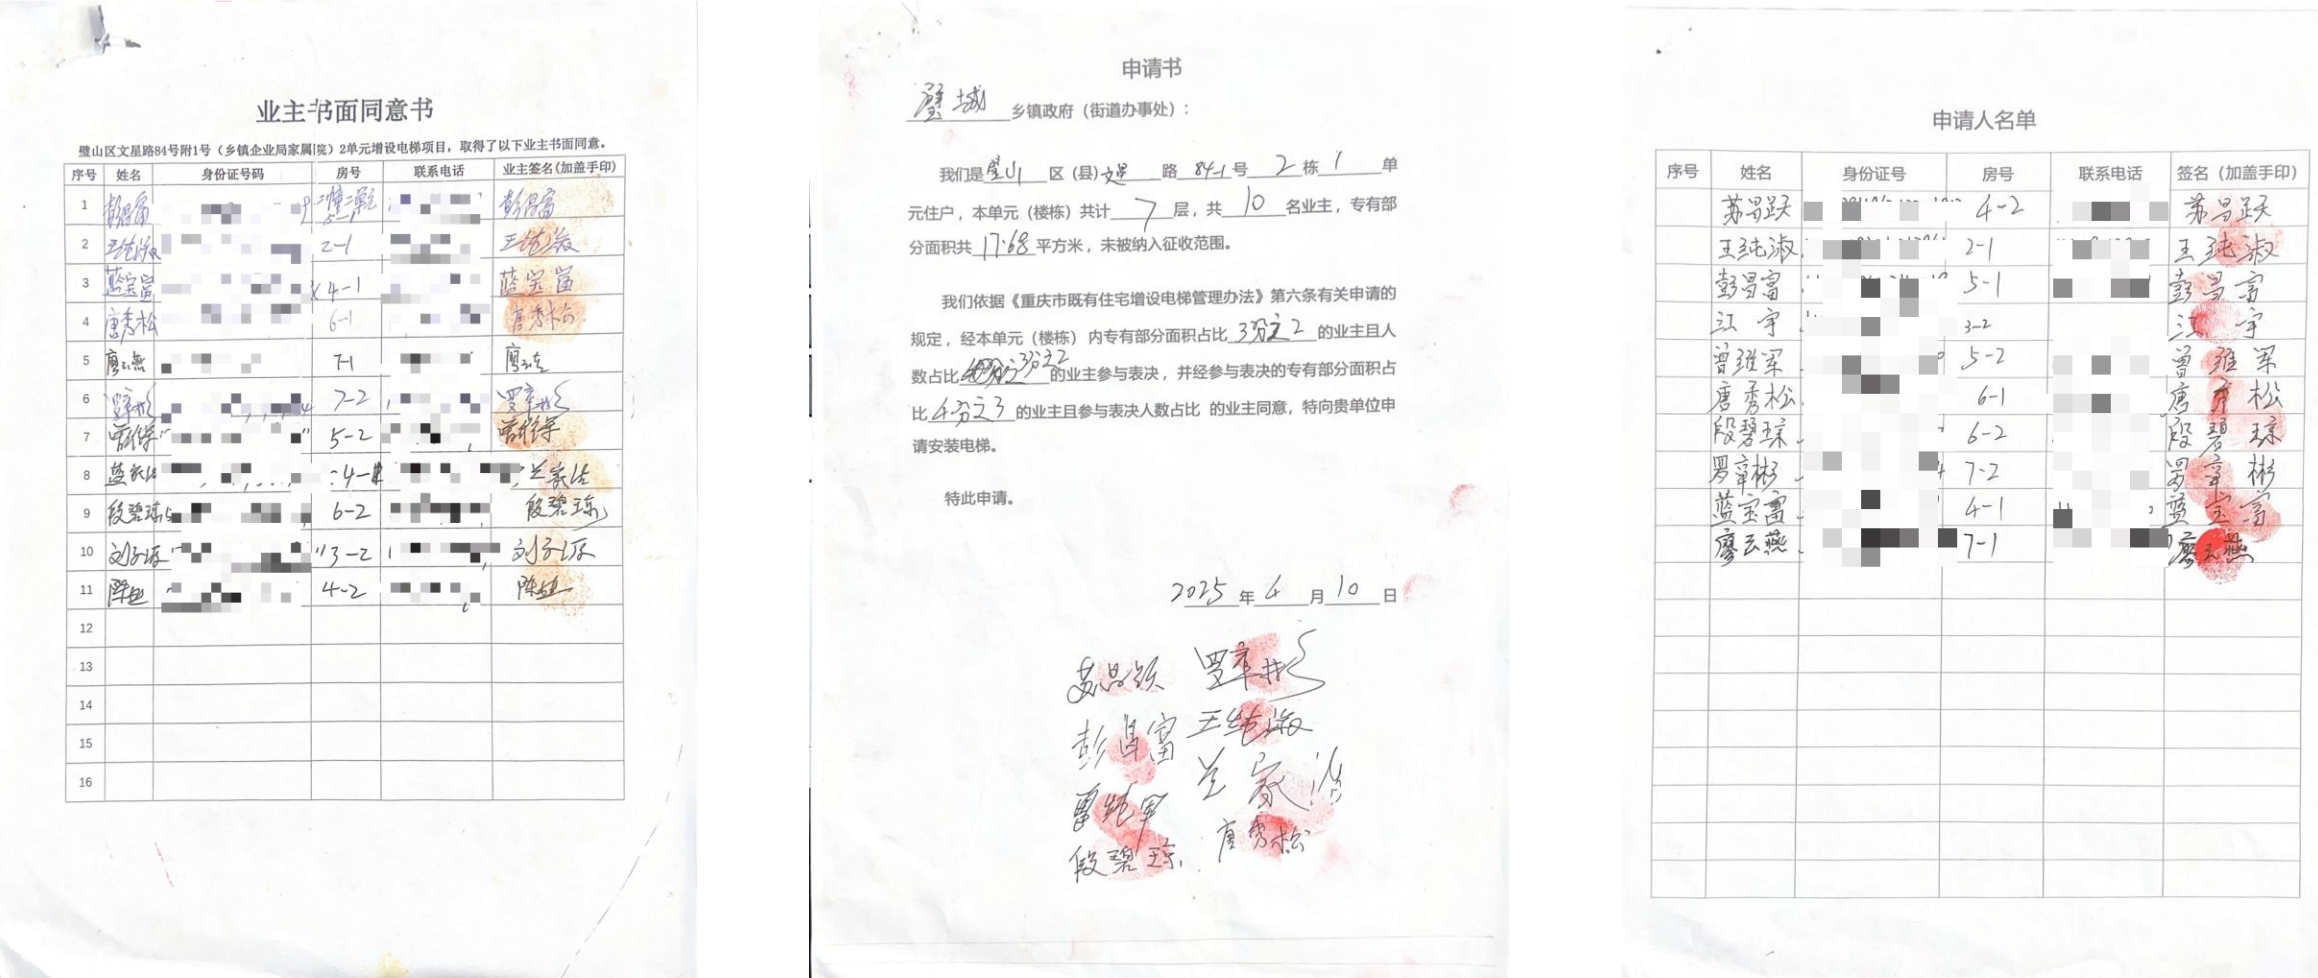 业主书面同意书
璧山区文星路84号附1号（乡镇企业局家属院）2单元增设电梯项目，取得了以下业主书面同意。
序号 姓名 身份证号码 房号 联系电话 业主签名(加盖手印)
1 彭昌富 彭昌富
2 王纯淑 2-1 王纯淑
3 蓝宝富 4-1 蓝宝富
4 唐秀松 6-1 唐秀松
5 廖云燕 7-1
6 罗章彬 7-2 罗章彬
7 曾维军 5-2 曾维军
8 兰家洪
9 段碧琼 6-2 段碧琼
10 3-2
11 4-2
12
13
14
15
16
申请书
璧城 乡镇政府（街道办事处）：
我们是璧山区（县）文星路 84-1 号 2 栋 1 单
元住户，本单元（楼栋）共计 7 层，共 10 名业主，专有部
分面积共 17.68 平方米，未被纳入征收范围。
我们依据《重庆市既有住宅增设电梯管理办法》第六条有关申请的
规定，经本单元（楼栋）内专有部分面积占比 3分之2 的业主且人
数占比 3分之2 的业主参与表决，并经参与表决的专有部分面积占
比 4分之3 的业主且参与表决人数占比 的业主同意，特向贵单位申
请安装电梯。
特此申请。
2025 年 4 月 10 日
罗章彬
彭昌富 王纯淑
曾维军
段碧琼 唐秀松
申请人名单
序号 姓名 身份证号 房号 联系电话 签名（加盖手印）
苏昌跃 4-2 苏昌跃
王纯淑 2-1 王纯淑
彭昌富 5-1 彭昌富
江宇 3-2 江宇
曾维军 5-2 曾维军
唐秀松 6-1 唐秀松
段碧琼 6-2 段碧琼
罗章彬 7-2 罗章彬
蓝宝富 4-1 蓝宝富
廖云燕 7-1 廖云燕